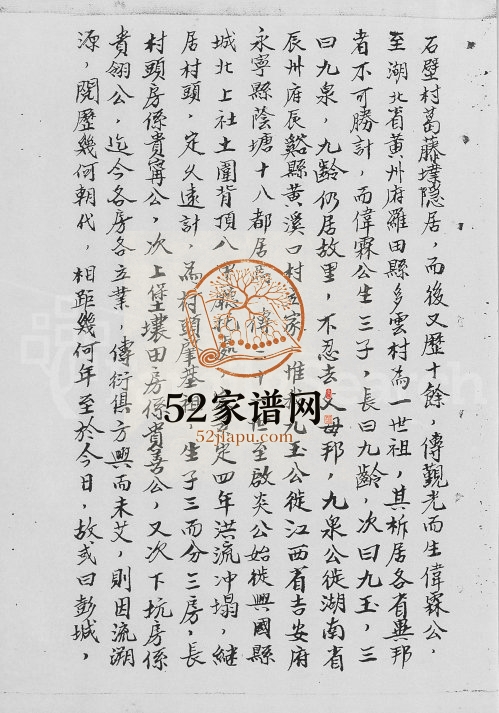 石壁村葛藤墶隐居，而後又歷十餘，傳觀光而生偉霖公，
至湖北省黄州府羅田縣多雲村為一世祖，其祈居各省異邦
者不可勝計，而偉霖公生三子，長曰九齡，次曰九玉，三
曰九泉，九齡仍居故里，不忍去父母邦，九泉公徙湖南省
辰州府辰谿縣黄溪口村 家 惟我九玉公徙江西省吉安府
永寧縣蔭塘十八都居 傳 十 世至啟炎公始徙興國縣
城北上社土圍背頂八 定四年洪流冲塌，継
居村頭，定久遠計，為村頭肇基祖，生子三而分三房，長
村頭房係貴寗公，次上堡壤田房係貴善公，又次下坑房係
貴翎公，迄今各房各立業，傳衍俱方興而未艾，則因流溯
源，閱歷幾何朝代，相距幾何年至於今日，故或曰彭城，
52家谱网
52jiapu.com